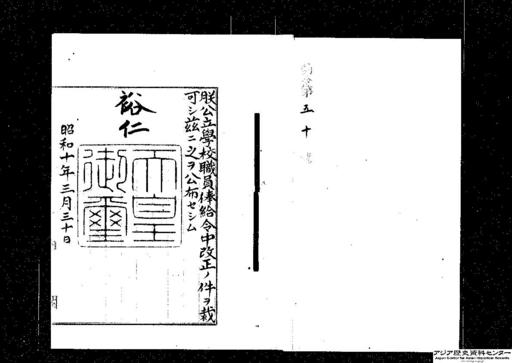 勅令第五十號
朕公立學校職員俸給令中改正ノ件ヲ裁
可シ茲ニ之ヲ公布セシム
裕仁
天皇
御璽
昭和十年三月三十日
アジア歴史資料センター
Japan Center for Asian Historical Records